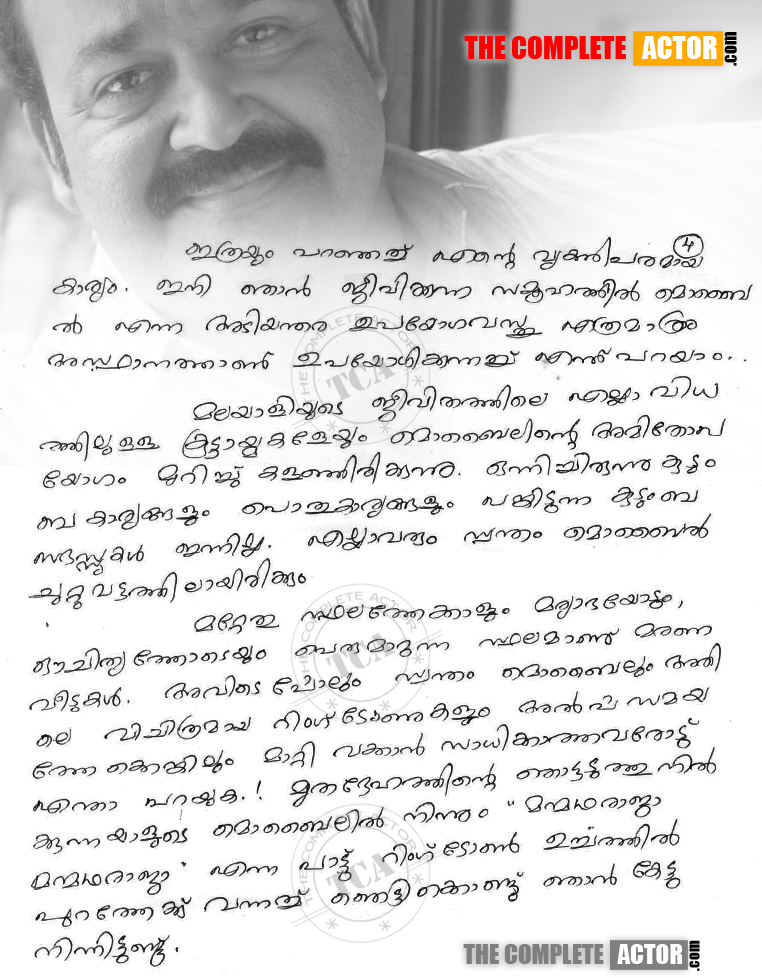 THE COMPLETE ACTOR .com
4
ഇത്രയും പറഞ്ഞത് എന്റെ വ്യക്തിപരമായ
കാര്യം. ഇനി ഞാൻ ജീവിക്കുന്ന സമൂഹത്തിൽ മൊബൈ
ൽ എന്ന അടിയന്തര ഉപയോഗവസ്തു എത്രമാത്രം
അസ്ഥാനത്താണ് ഉപയോഗിക്കുന്നത് എന്ന് പറയാം..
മലയാളിയുടെ ജീവിതത്തിലെ എല്ലാ വിധ
ത്തിലുള്ള കൂട്ടായ്മകളേയും മൊബൈലിന്റെ അമിതോപ
യോഗം മുറിച്ചു കളഞ്ഞിരിക്കുന്നു. ഒന്നിച്ചിരുന്നു കുടും
ബ കാര്യങ്ങളും പൊതുകാര്യങ്ങളും പങ്കിടുന്ന കുടുംബ
സദസ്സുകൾ ഇന്നില്ല. എല്ലാവരും സ്വന്തം മൊബൈൽ
ചുറ്റുവട്ടത്തിലായിരിക്കും
മറ്റേതു സ്ഥലത്തേക്കാളും മര്യാദയോടും,
ഔചിത്യത്തോടെയും പെരുമാറുന്ന സ്ഥലമാണ് മരണ
വീടുകൾ. അവിടെപ്പോലും സ്വന്തം മൊബൈലും അതി
ലെ വിചിത്രമായ റിംഗ്ടോണുകളും അൽപ സമയ
ത്തേക്കെങ്കിലും മാറ്റി വക്കാൻ സാധിക്കാത്തവരോട്
എന്താ പറയുക.! മൃതദേഹത്തിന്റെ തൊട്ടടുത്തുനിൽ
ക്കുന്നയാളുടെ മൊബൈലിൽ നിന്നും "മന്മഥരാജാ
മന്മഥരാജാ" എന്ന പാട്ട് റിംഗ്ടോൺ ഉച്ചത്തിൽ
പുറത്തേക്ക് വന്നത് ഞെട്ടിക്കൊണ്ട് ഞാൻ കേട്ടു
നിന്നിട്ടുണ്ട്.
THE COMPLETE ACTOR TCA
THE COMPLETE ACTOR TCA
THE COMPLETE ACTOR TCA
THE COMPLETE ACTOR .com